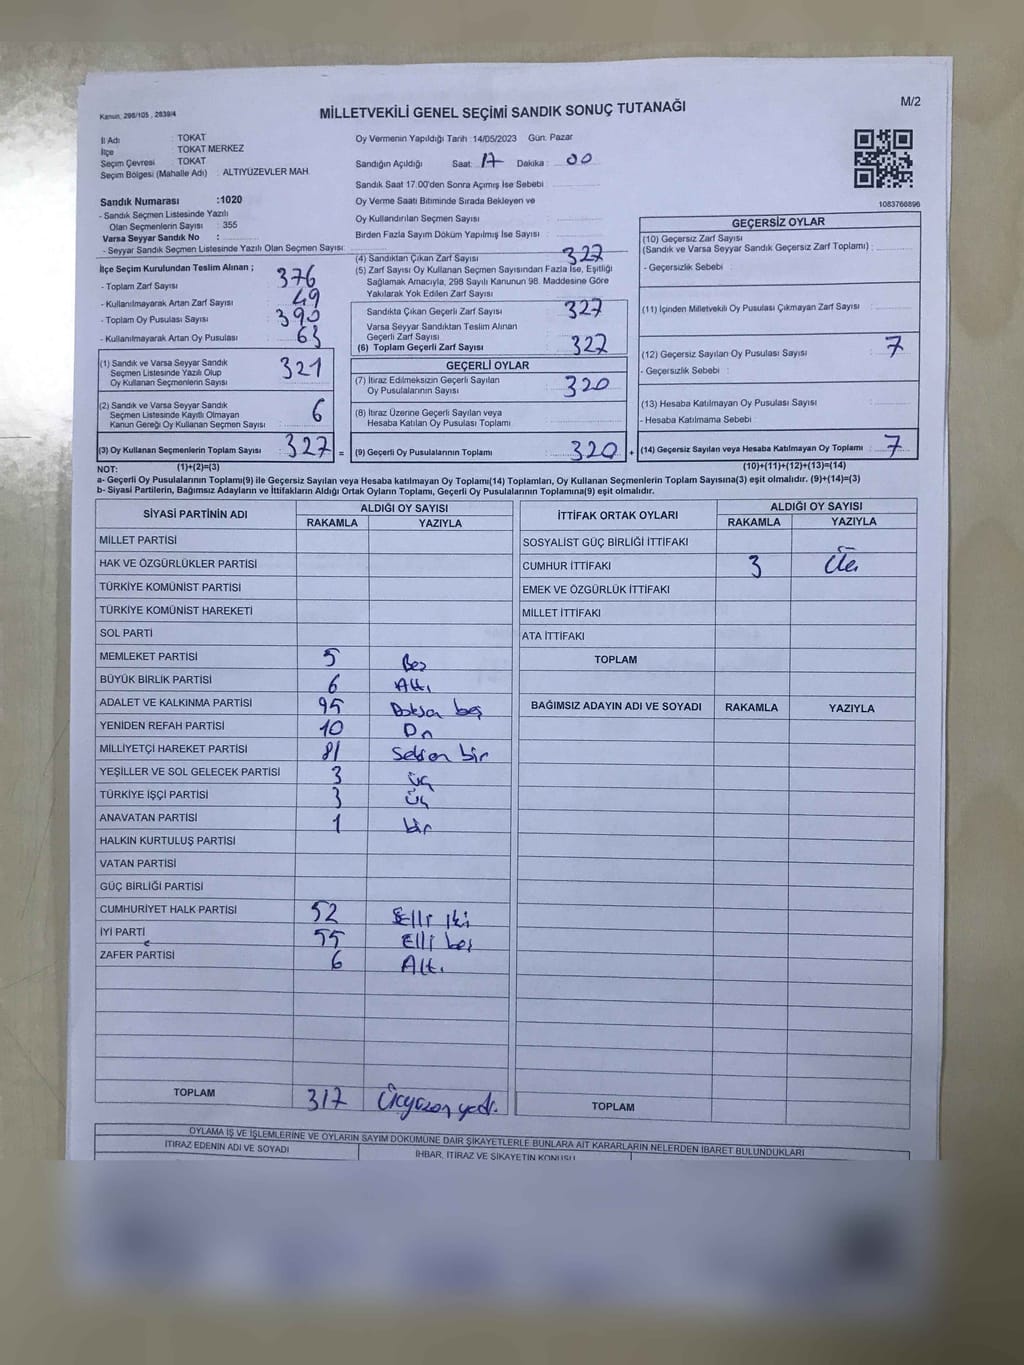 Kanun, 298/105 , 2839/4
MİLLETVEKİLİ GENEL SEÇİMİ SANDIK SONUÇ TUTANAĞI
M/2
İl Adı : TOKAT
İlçe : TOKAT MERKEZ
Seçim Çevresi : TOKAT
Seçim Bölgesi (Mahalle Adı) : ALTIYÜZEVLER MAH.
Sandık Numarası :1020
- Sandık Seçmen Listesinde Yazılı
Olan Seçmenlerin Sayısı : 355
Varsa Seyyar Sandık No :
- Seyyar Sandık Seçmen Listesinde Yazılı Olan Seçmen Sayısı:
Oy Vermenin Yapıldığı Tarih :14/05/2023 Gün: Pazar
Sandığın Açıldığı Saat: 17 Dakika : 00
Sandık Saat 17.00'den Sonra Açımış İse Sebebi :
Oy Verme Saati Bitiminde Sırada Bekleyen ve
Oy Kullandırılan Seçmen Sayısı :
Birden Fazla Sayım Döküm Yapılmış İse Sayısı :
1083766896
İlçe Seçim Kurulundan Teslim Alınan ;
- Toplam Zarf Sayısı : 376
- Kullanılmayarak Artan Zarf Sayısı : 49
- Toplam Oy Pusulası Sayısı : 390
- Kullanılmayarak Artan Oy Pusulası : 63
(1) Sandık ve Varsa Seyyar Sandık
Seçmen Listesinde Yazılı Olup
Oy Kullanan Seçmenlerin Sayısı : 321
(2) Sandık ve Varsa Seyyar Sandık
Seçmen Listesinde Kayıtlı Olmayan
Kanun Gereği Oy Kullanan Seçmen Sayısı : 6
(3) Oy Kullanan Seçmenlerin Toplam Sayısı : 327 =
(4) Sandıktan Çıkan Zarf Sayısı : 327
(5) Zarf Sayısı Oy Kullanan Seçmen Sayısından Fazla İse, Eşitliği
Sağlamak Amacıyla, 298 Sayılı Kanunun 98. Maddesine Göre
Yakılarak Yok Edilen Zarf Sayısı :
Sandıkta Çıkan Geçerli Zarf Sayısı : 327
Varsa Seyyar Sandıktan Teslim Alınan
Geçerli Zarf Sayısı :
(6) Toplam Geçerli Zarf Sayısı : 327
GEÇERLİ OYLAR
(7) İtiraz Edilmeksizin Geçerli Sayılan
Oy Pusulalarının Sayısı : 320
(8) İtiraz Üzerine Geçerli Sayılan veya
Hesaba Katılan Oy Pusulası Toplamı :
(9) Geçerli Oy Pusulalarının Toplamı : 320 +
GEÇERSİZ OYLAR
(10) Geçersiz Zarf Sayısı
(Sandık ve Varsa Seyyar Sandık Geçersiz Zarf Toplamı) :
- Geçersizlik Sebebi :
(11) İçinden Milletvekili Oy Pusulası Çıkmayan Zarf Sayısı :
(12) Geçersiz Sayılan Oy Pusulası Sayısı : 7
- Geçersizlik Sebebi :
(13) Hesaba Katılmayan Oy Pusulası Sayısı :
- Hesaba Katılmama Sebebi :
(14) Geçersiz Sayılan veya Hesaba Katılmayan Oy Toplamı : 7
NOT: (1)+(2)=(3) (10)+(11)+(12)+(13)=(14)
a- Geçerli Oy Pusulalarının Toplamı(9) ile Geçersiz Sayılan veya Hesaba katılmayan Oy Toplamı(14) Toplamları, Oy Kullanan Seçmenlerin Toplam Sayısına(3) eşit olmalıdır. (9)+(14)=(3)
b- Siyasi Partilerin, Bağımsız Adayların ve İttifakların Aldığı Ortak Oyların Toplamı, Geçerli Oy Pusulalarının Toplamına(9) eşit olmalıdır.
SİYASİ PARTİNİN ADI ALDIĞI OY SAYISI
RAKAMLA YAZIYLA
MİLLET PARTİSİ
HAK VE ÖZGÜRLÜKLER PARTİSİ
TÜRKİYE KOMÜNİST PARTİSİ
TÜRKİYE KOMÜNİST HAREKETİ
SOL PARTİ
MEMLEKET PARTİSİ 5 Beş
BÜYÜK BİRLİK PARTİSİ 6 Altı
ADALET VE KALKINMA PARTİSİ 95 Doksa beş
YENİDEN REFAH PARTİSİ 10 On
MİLLİYETÇİ HAREKET PARTİSİ 81 Seksen bir
YEŞİLLER VE SOL GELECEK PARTİSİ 3 üç
TÜRKİYE İŞÇİ PARTİSİ 3 üç
ANAVATAN PARTİSİ 1 bir
HALKIN KURTULUŞ PARTİSİ
VATAN PARTİSİ
GÜÇ BİRLİĞİ PARTİSİ
CUMHURİYET HALK PARTİSİ 52 Elli iki
İYİ PARTİ 55 Elli beş
ZAFER PARTİSİ 6 Altı
TOPLAM 317 Üçyüzon yedi
İTTİFAK ORTAK OYLARI ALDIĞI OY SAYISI
RAKAMLA YAZIYLA
SOSYALİST GÜÇ BİRLİĞİ İTTİFAKI
CUMHUR İTTİFAKI 3 Üç
EMEK VE ÖZGÜRLÜK İTTİFAKI
MİLLET İTTİFAKI
ATA İTTİFAKI
TOPLAM
BAĞIMSIZ ADAYIN ADI VE SOYADI RAKAMLA YAZIYLA
TOPLAM
OYLAMA İŞ VE İŞLEMLERİNE VE OYLARIN SAYIM DÖKÜMÜNE DAİR ŞİKAYETLERLE BUNLARA AİT KARARLARIN NELERDEN İBARET BULUNDUKLARI
İTİRAZ EDENİN ADI VE SOYADI
İHBAR, İTİRAZ VE ŞİKAYETİN KONUSU